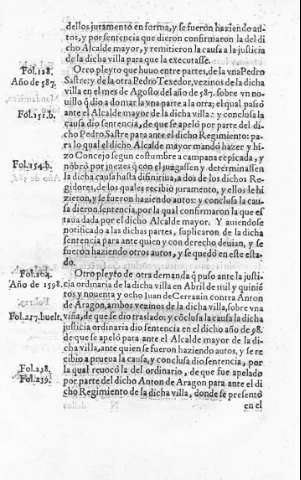 dellos juramento en forma, y se fueron haziendo au-
tos, y por sentencia que dieron confirmaron la del di
cho Alcalde mayor, y remitieron la causa a la justicia
de la dicha villa para que la executasse.
Fol.128. Otro pleyto que huuo entre partes, de la vna Pedro
Año de 587. Sastre: y de la otra Pedro Texedor, vezinos de la dicha
villa en el mes de Agosto del año de 587. sobre vn no-
uillo q̃ dio a domar la vna parte a la otra; el qual passó
Fol.151.b. ante el Alcalde mayor de la dicha villa: y conclusa la
causa dio sentencia, de que se apeló por parte del di-
cho Pedro Sastre para ante el dicho Regimiento: pa-
ra lo qual el dicho Alcalde mayor mandó hazer y hi-
zo Concejo segun costumbre a campana repicada, y
Fol.154.b. nõbró por juezes q̃ con el juzgassen y determinassen
la dicha causa hasta difinitiua, a dos de los dichos Re-
gidores, de los quales recibio juramento, y ellos le hi
zieron, y se fueron haziendo autos: y conclusa la cau-
sa dieron sentencia, por la qual confirmaron la que es
taua dada por el dicho Alcalde mayor. Y auiendose
notificado a las dichas partes, suplicaron de la dicha
sentencia para ante quien y con derecho deuian, y se
fueron haziendo otros autos, y se quedó en este esta-
do.
Fol.164. Otro pleyto de otra demanda q̃ puso ante la justi-
Año de 1598. cia ordinaria de la dicha villa en Abril de mil y quiniẽ
tos y nouenta y ocho Iuan de Cerraxin contra Anton
de Aragon, ambos vezinos de la dicha villa, sobre vna
Fol.217.buelt. viña, de que se dio traslado: y cõclusa la causa la dicha
justicia ordinaria dio sentencia en el dicho año de 98.
de que se apeló para ante el Alcalde mayor de la di-
cha villa, ante quien se fueron haziendo autos, y se re
cibio a prueua la causa, y conclusa dio sentencia, por
Fol.238. la qual reuocò la del ordinario, de que fue apelado
Fol.239. por parte del dicho Anton de Aragon para ante el di
cho Regimiento de la dicha villa, donde se presentó
en el